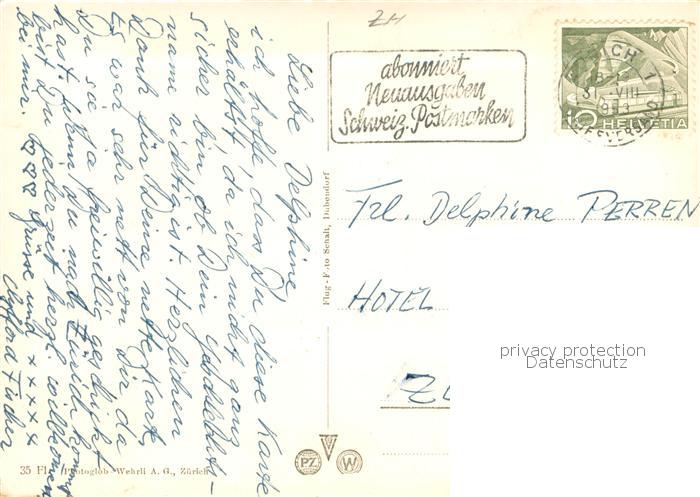 ZH
abonniert
Neuausgaben
Schweiz. Postmarken
31. VIII
10 HELVETIA
Frl. Delphine PERREN
HOTEL
privacy protection
Datenschutz
Liebe Delphine,
ich hoffe dass Du diese Karte
erhältst da ich nicht ganz
sicher bin ob Dein
name richtig ist. Herzlichen
Dank für Deine nette Karte
es war sehr nett von Dir da
Du sie ja freiwillig geschickt
hast. Wenn Du nach Zürich kommst
bist Du jederzeit herzl. willkommen
bei mir. Grüsse und x x x x
Fischer
Flug-Foto Schalt, Dübendorf
35 Fl. Photoglob-Wehrli A. G., Zürich
PZ W